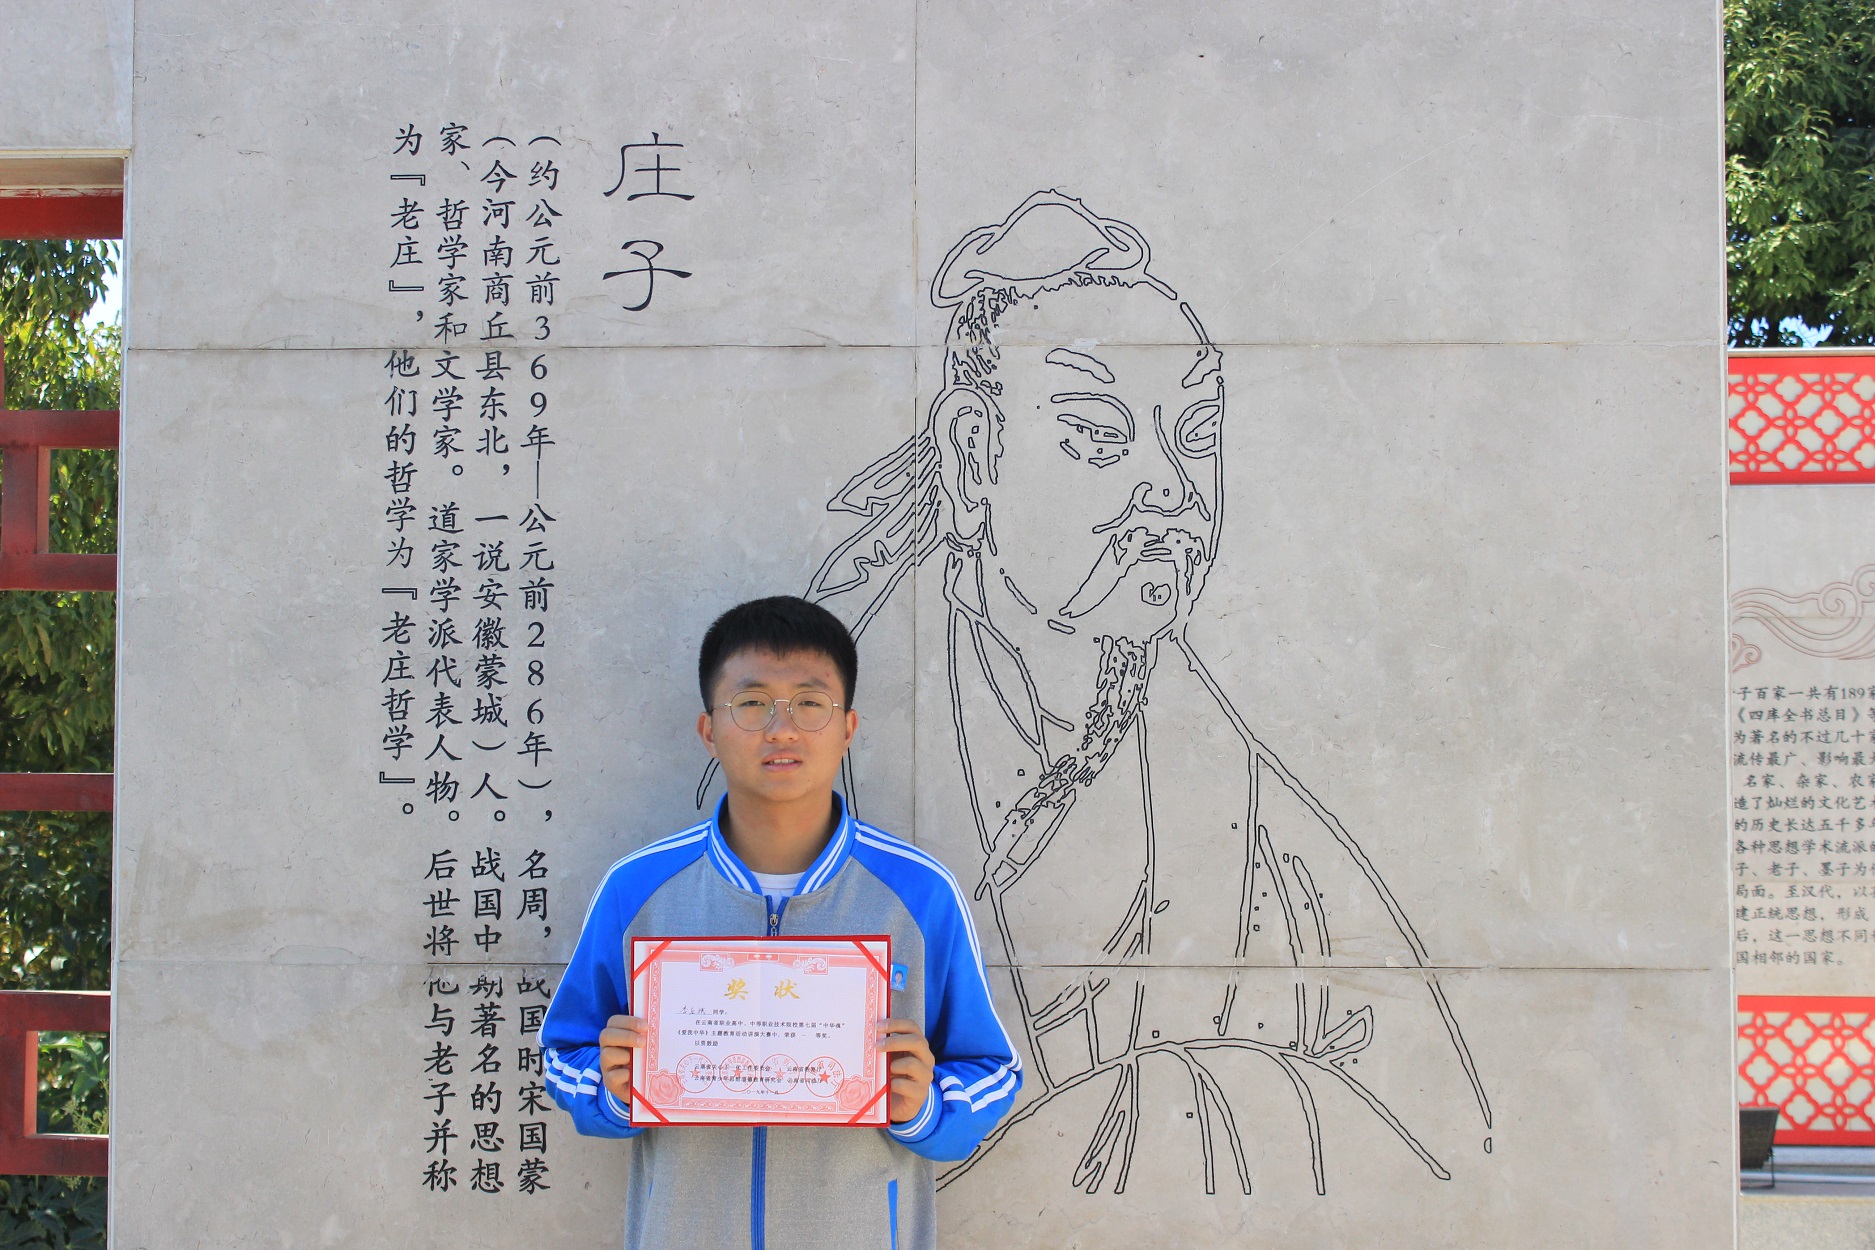 庄子
（约公元前369年—公元前286年），名周，战国时宋国蒙
（今河南商丘县东北，一说安徽蒙城）人。战国中期著名的思想
家、哲学家和文学家。道家学派代表人物。后世将他与老子并称
为『老庄』，他们的哲学为『老庄哲学』。
奖状
同学：
在云南省职业高中、中等职业技术院校第七届“中华魂”
《爱我中华》主题教育活动讲演大赛中，荣获 一 等奖。
以资鼓励
二〇一九年十一月
子百家一共有189家
《四库全书总目》等
为著名的不过几十家
流传最广、影响最大
名家、杂家、农家
造了灿烂的文化艺术
的历史长达五千多年
各种思想学术流派的
子、老子、墨子为代
局面。至汉代，以
建正统思想，形成
后，这一思想不同
国相邻的国家。